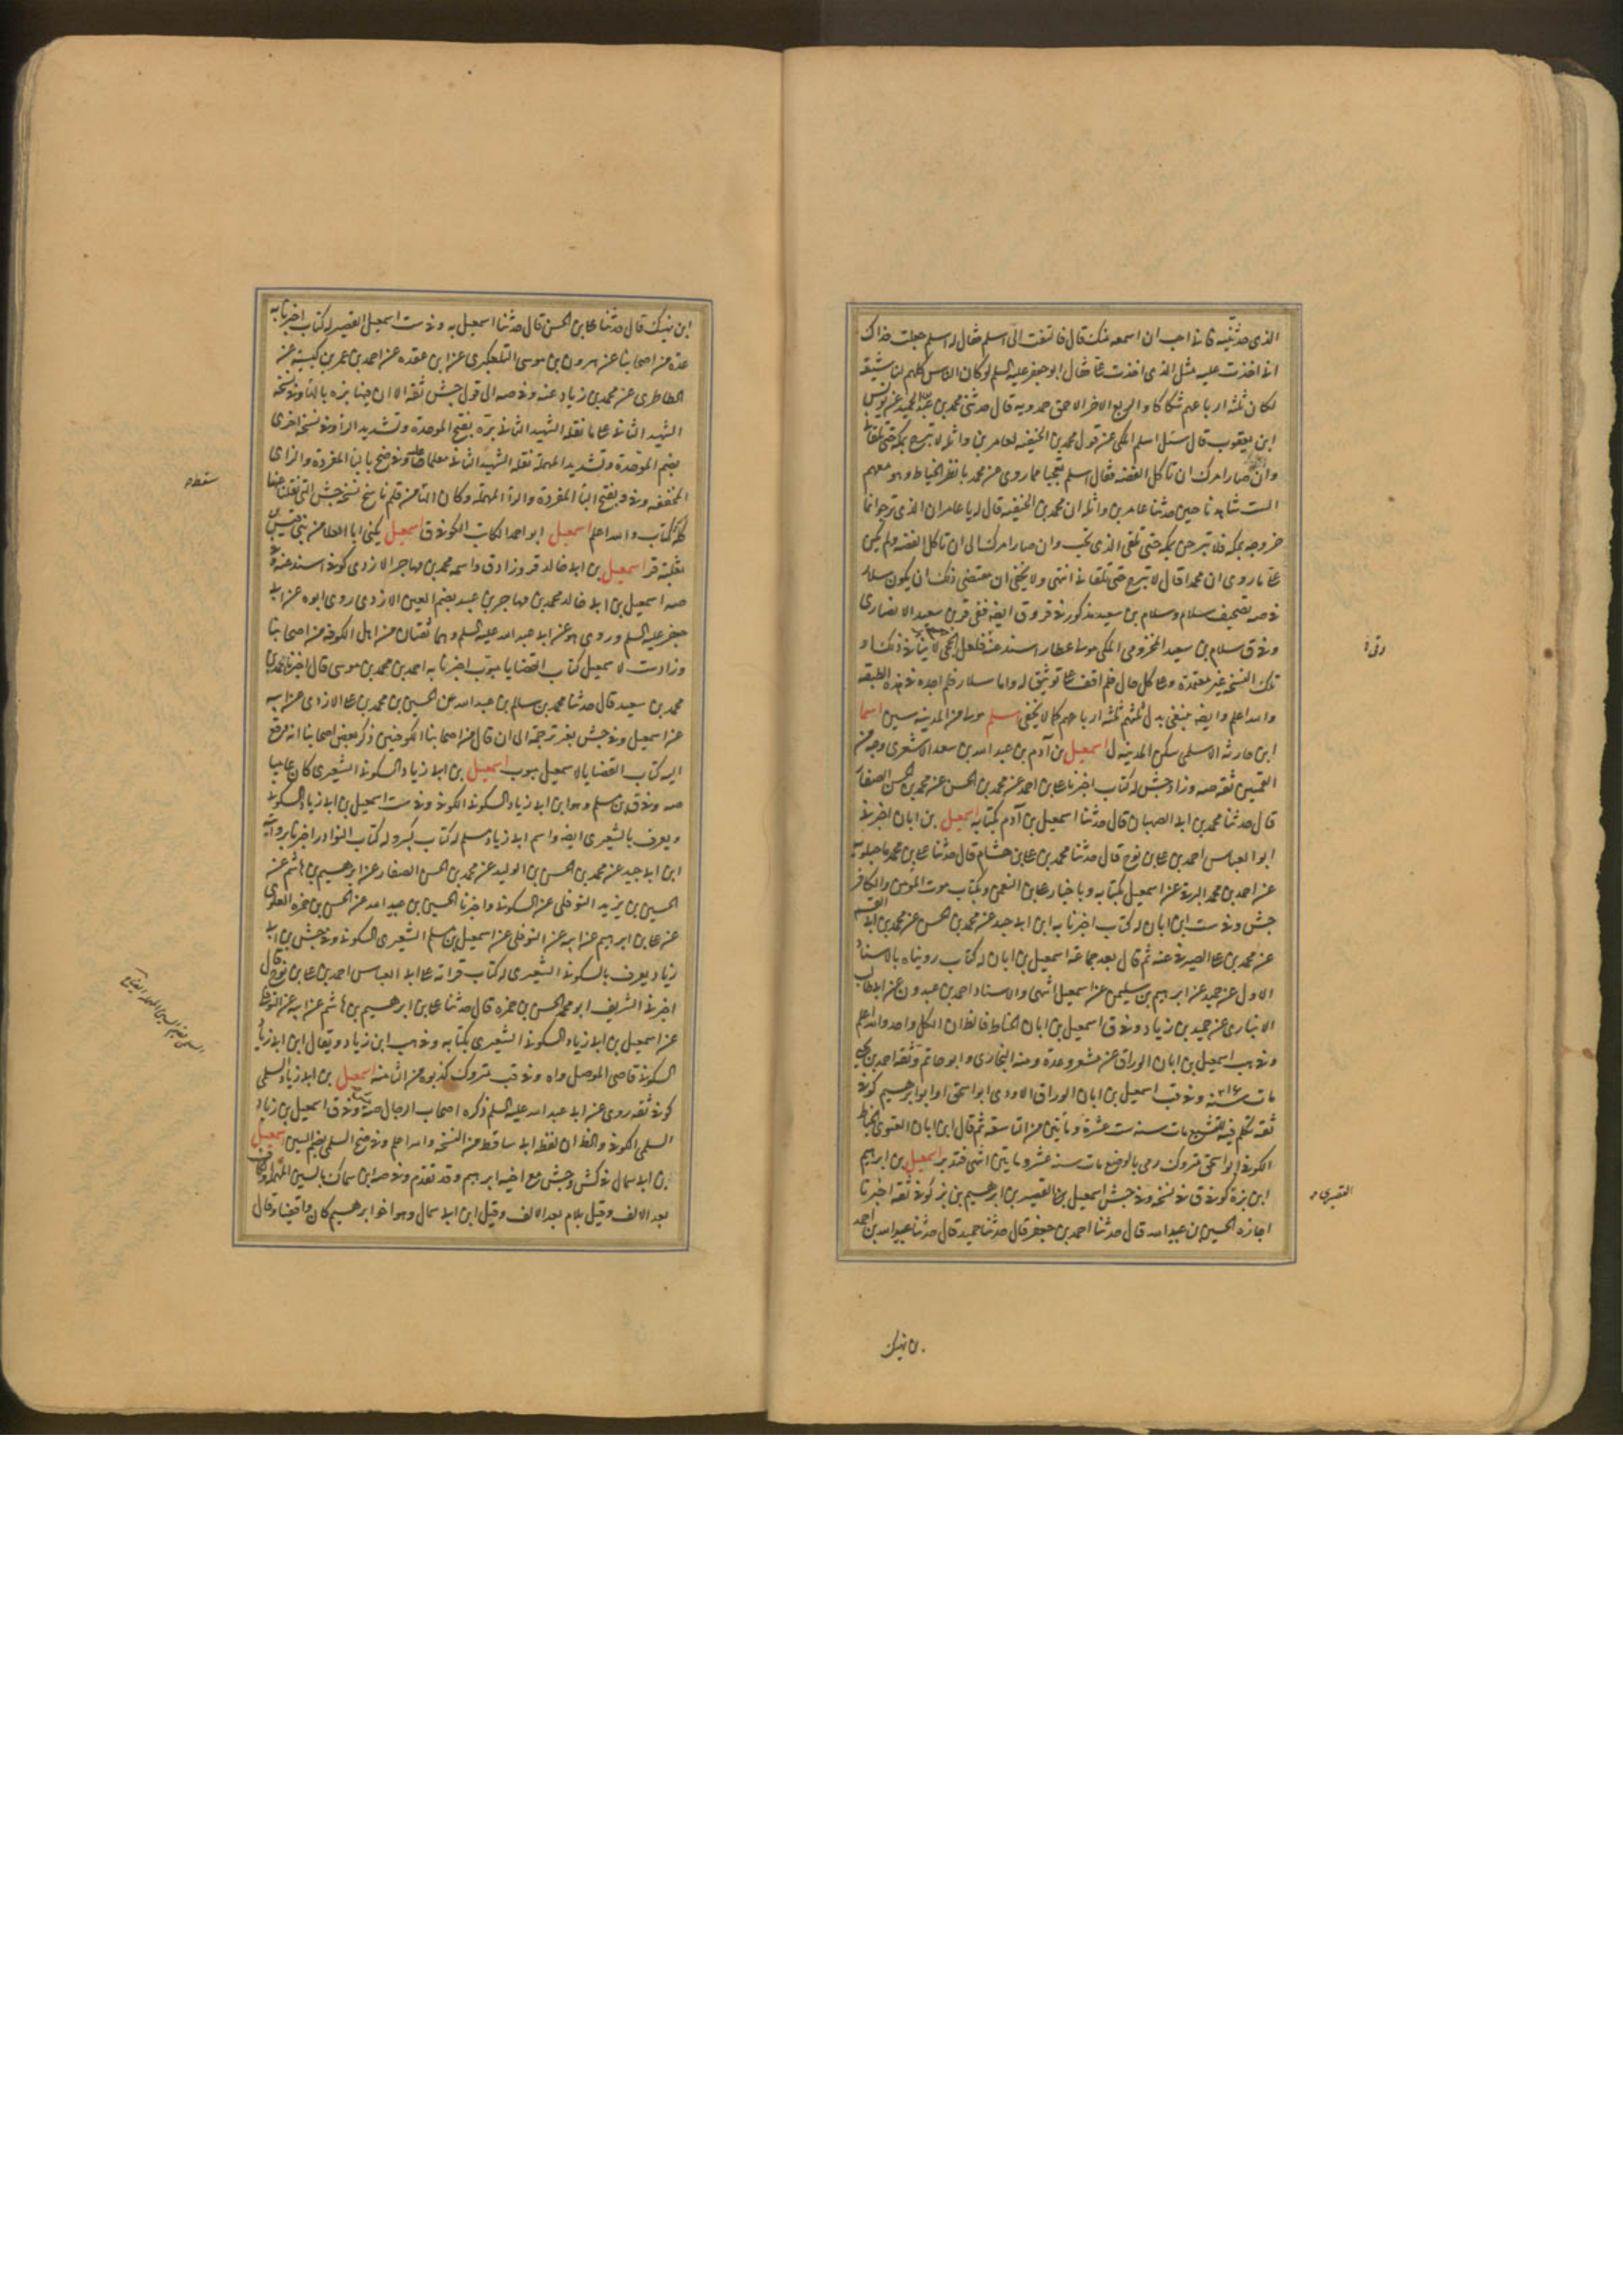 الذى حدثنيه فانى احب ان اسمعه منك قال فالتفت الى اسلم فقال له اسلم جعلت فداك
انى اخذت عليه مثل الذى اخذت علىّ فقال ابو جعفر عليه السلم لو كان الناس كلهم لنا شيعة
لكان ثلثة ارباعهم شكاكا والربع الاخر احمق حمدويه قال حدثنى محمد بن عبد الحميد عن يونس
ابن يعقوب قال سئل اسلم المكى عن قول محمد بن الحنفيه لعامر بن واثله لا تبرح بمكة حتى تلقانى
وان صار امرك ان تاكل القضة فقال اسلم تعجبا مما روى عن محمد يا نظر الخياط وهو معهم
الست شاهدنا حين حدثنا عامر بن واثله ان محمد بن الحنفيه قال له يا عامر ان الذى ترجو انما
خروجه بمكة فلا تبرحن بمكة حتى تلقى الذى تحب وان صار امرك الى ان تاكل القضة ولم يكن
على ما روى ان محمدا قال لا تبرح حتى تلقانى انتهى ولا يخفى ان مقتضى ذلك ان يكون سلام
فى صه تصحيف سلام وسلام بن سعيد مذكور فى قر وق ايضه ففى قر بن سعيد الانصارى
وفى ق سلام بن سعيد المخزومى المكى مولى عطار اسند عنه فلعل المكى ذلك او
تلك النسخة غير معتمدة وعلى كل حال فلم اقف على توثيق له واما سلار فلم اجده فى هذه الطبقة
والله اعلم وايضه ينبغى بدل ثلثهم ثلثة ارباعهم كما لا يخفى اسلم مولى من المدينه سين اسما
ابن حارثه الاسلمى سكن المدينه ل اسمعيل بن آدم بن عبد الله بن سعد الاشعرى وجه من
القميين ثقه صه وزاد جش له كتاب اخبرنا على بن احمد عن محمد بن الحسن عن محمد بن الحسن الصفار
قال حدثنا محمد بن ابى الصهبان قال حدثنا اسمعيل بن آدم بكتابه اسمعيل بن ابان اخبرنى
ابو العباس احمد بن على بن نوح قال حدثنا محمد بن على بن هشام قال حدثنا على بن محمد ماجيلويه
عن احمد بن محمد البرقى عن اسمعيل بكتابه وباخبار على بن النعمى وبكتاب موت المؤمن والكافر
جش وفى ست ابن ابان له كتاب اخبرنا به ابن ابى جيد عن محمد بن الحسن عن محمد بن ابى القسم
عن محمد بن على الصيرفى عنه ثم قال بعد جماعة اسمعيل بن ابان له كتاب رويناه بالاسناد
الاول عن حميد عن ابرهيم بن سليمن عن اسمعيل انتهى والاسناد احمد بن عبدون عن ابى طالب
الانبارى عن حميد بن زياد وفى ق اسمعيل بن ابان الحناط فالظ ان الكل واحد والله اعلم
وفى هب اسمعيل بن ابان الوراق عن مسعر وعدة وعنه البخارى وابو حاتم وثقه احمد بن
مات سنه ٢١٦ وفى قب اسمعيل بن ابان الوراق الاودى ابو اسحق او ابو ابرهيم كوفى
ثقه تكلم فيه للتشيع مات سنة ست عشرة ومأتين من التاسعه ثم قال ابن ابان الغنوى الخياط
الكوفى ابو اسحق متروك رمى بالوضع مات سنه عشر وماتين انتهى فتدبر اسمعيل بن ابرهيم
ابن بزه كوفى ق فى نسخه وفى جش اسمعيل بن القصير بن ابرهيم بن بز كوفى ثقه اخبرنا
اجازه الحسين بن عبيد الله قال حدثنا احمد بن جعفر قال حدثنا حميد قال حدثنا عبيد الله بن احمد
القصيرى
بن نهيك
ابن نهيك قال حدثنا على بن الحسن قال حدثنا اسمعيل به وفى ست اسمعيل القصير له كتاب اخبرنا به
عدة من اصحابنا عن هرون بن موسى التلعكبرى عن ابن عقده عن احمد بن عمر بن كيسبه عن
الطاطرى عن محمد بن زياد عنه وفى صه الى قول جش ثقه الا ان فيها بزه بالتا وفى نسخه
الشهيد الثانى على ما نقله الشهيد الثانى بره بفتح الموحدة وتشديد الرا وفى نسخه اخرى
بضم الموحدة وتشديد المهملة نقله الشهيد الثانى معلما وفى ضح بالبا المفردة والزاى
المخففه وفى د بفتح البا المفردة والرا المهمله وكان التا من قلم ناسخ نسخه جش التى نقلت منها
الكتاب والله اعلم اسمعيل ابو احمد الكاتب الكوفى ق اسمعيل يكنى ابا العلا من بنى قيس بن
ثعلبة قر اسمعيل بن ابى خالد قر وزاد ق واسمه محمد بن مهاجر الازدى كوفى اسند عنه وفى
صه اسمعيل بن ابى خالد محمد بن مهاجر بن عبيد بضم العين الازدى روى ابوه عن ابى
جعفر عليه السلم وروى هو عن ابى عبد الله عليه السلم وهما ثقتان من اهل الكوفه من اصحابنا
وزاد ست لاسمعيل كتاب القضايا مبوب اخبرنا به احمد بن محمد بن موسى قال اخبرنا احمد بن
محمد بن سعيد قال حدثنا محمد بن سالم بن عبد الله عن الحسين بن محمد بن على الازدى عن ابيه
عن اسمعيل وفى جش بغير ترجمة الى ان قال من اصحابنا الكوفيين ذكر بعض اصحابنا انه وقع
اليه كتاب القضايا لاسمعيل مبوب اسمعيل بن ابى زياد السكونى الشعيرى كان عاميا
صه وفى ق بن مسلم وهو ابن ابى زياد السكونى الكوفى وفى ست اسمعيل بن ابى زياد السكونى
ويعرف بالشعيرى ايضه واسم ابى زياد مسلم له كتاب كبير وله كتاب النوادر اخبرنا برواياته
ابن ابى جيد عن محمد بن الحسن بن الوليد عن محمد بن الحسن الصفار عن ابرهيم بن هاشم عن
الحسين بن يزيد النوفلى عن السكونى واخبرنا الحسين بن عبيد الله عن الحسن بن حمزه العلوى
عن على بن ابرهيم عن ابيه عن النوفلى عن اسمعيل بن مسلم الشعيرى السكونى وفى جش بن ابى
زياد يعرف بالسكونى الشعيرى له كتاب قراته على ابى العباس احمد بن على بن نوح قال
اخبرنى الشريف ابو محمد الحسن بن حمزه قال حدثنا على بن ابرهيم بن هاشم عن ابيه عن النوفلى
عن اسمعيل بن ابى زياد السكونى الشعيرى بكتابه وفى هب ابن زياد ويقال ابن ابى زياد
السكونى قاضى الموصل واه وفى قب متروك كذبوه من الثامنه اسمعيل بن ابى زياد السلمى
كوفى ثقه روى عن ابى عبد الله عليه السلم ذكره اصحاب الرجال صه وفى ق اسمعيل بن زياد
السلمى الكوفى والظ ان لفظ ابى ساقط من النسخه والله اعلم وفى ضح السلمى بضم السين اسمعيل
بن ابى سمال فى كش وجش مع اخيه ابرهيم وقد تقدم وفى صه ابن سماك بالسين المهملة والكاف
بعد الالف وقيل بلام بعد الالف وقيل ابن ابى سمال وهو اخو ابرهيم كان واقفيا وقال